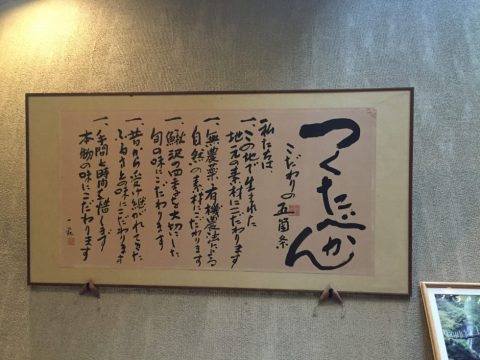 つくたべかん
こだわりの五箇条
私たちは、
一、この地で生まれた
地元の素材にこだわります
一、無農薬・有機農法による
自然の素材にこだわります
一、鰍沢の四季を大切にした
旬の味にこだわります
一、昔から受け継がれてきた
ふるさとの味にこだわります
一、手間と時間を惜しまず
本物の味にこだわります